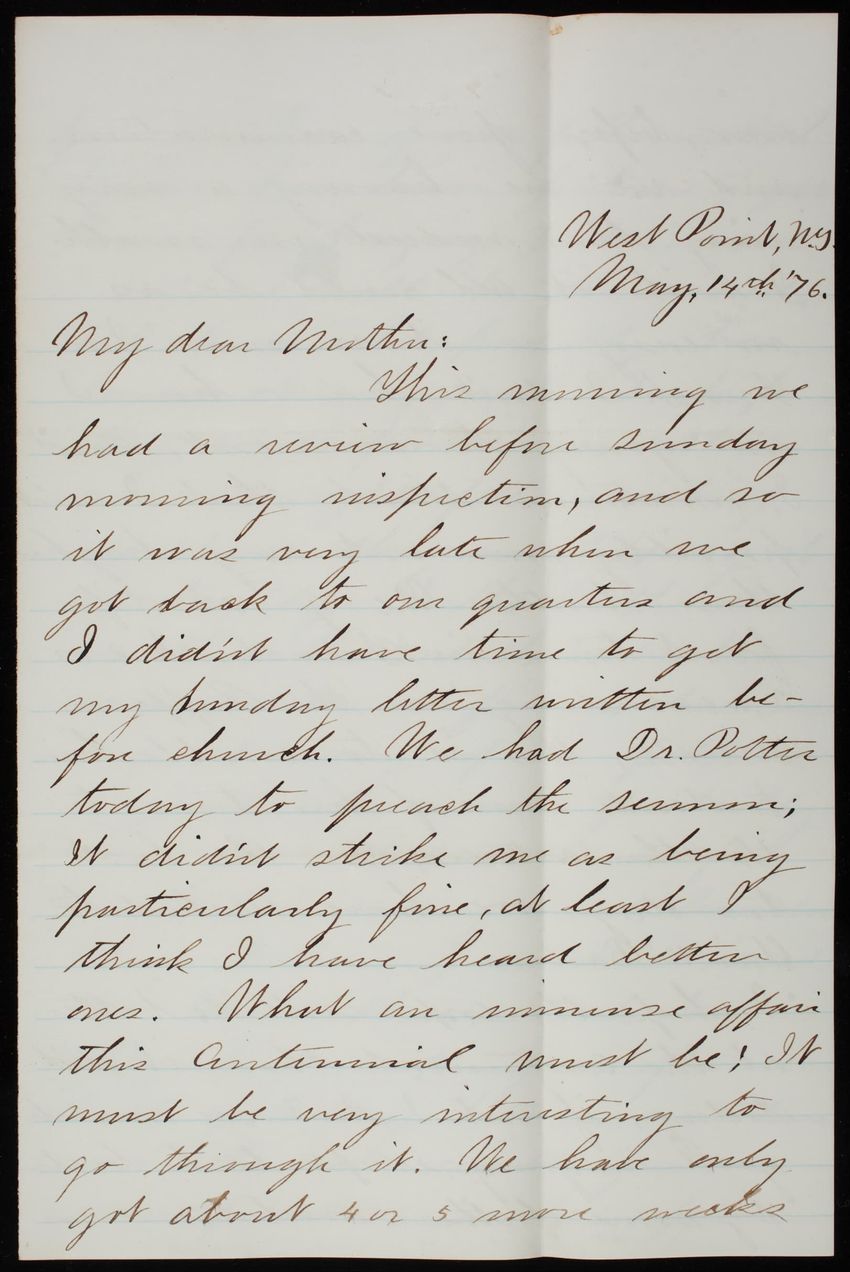 West Point, N.Y.
May, 14th '76.
My dear Mother:
This morning we
had a review before Sunday
morning inspection, and so
it was very late when we
got back to our quarters and
I did'nt have time to get
my Sunday letter written be-
fore church. We had Dr. Potter
today to preach the sermon;
It did'nt strike me as being
particularly fine, at least I
think I have heard better
ones. What an immense affair
this Centennial must be! It
must be very interesting to
go through it. We have only
got about 4 or 5 more weeks